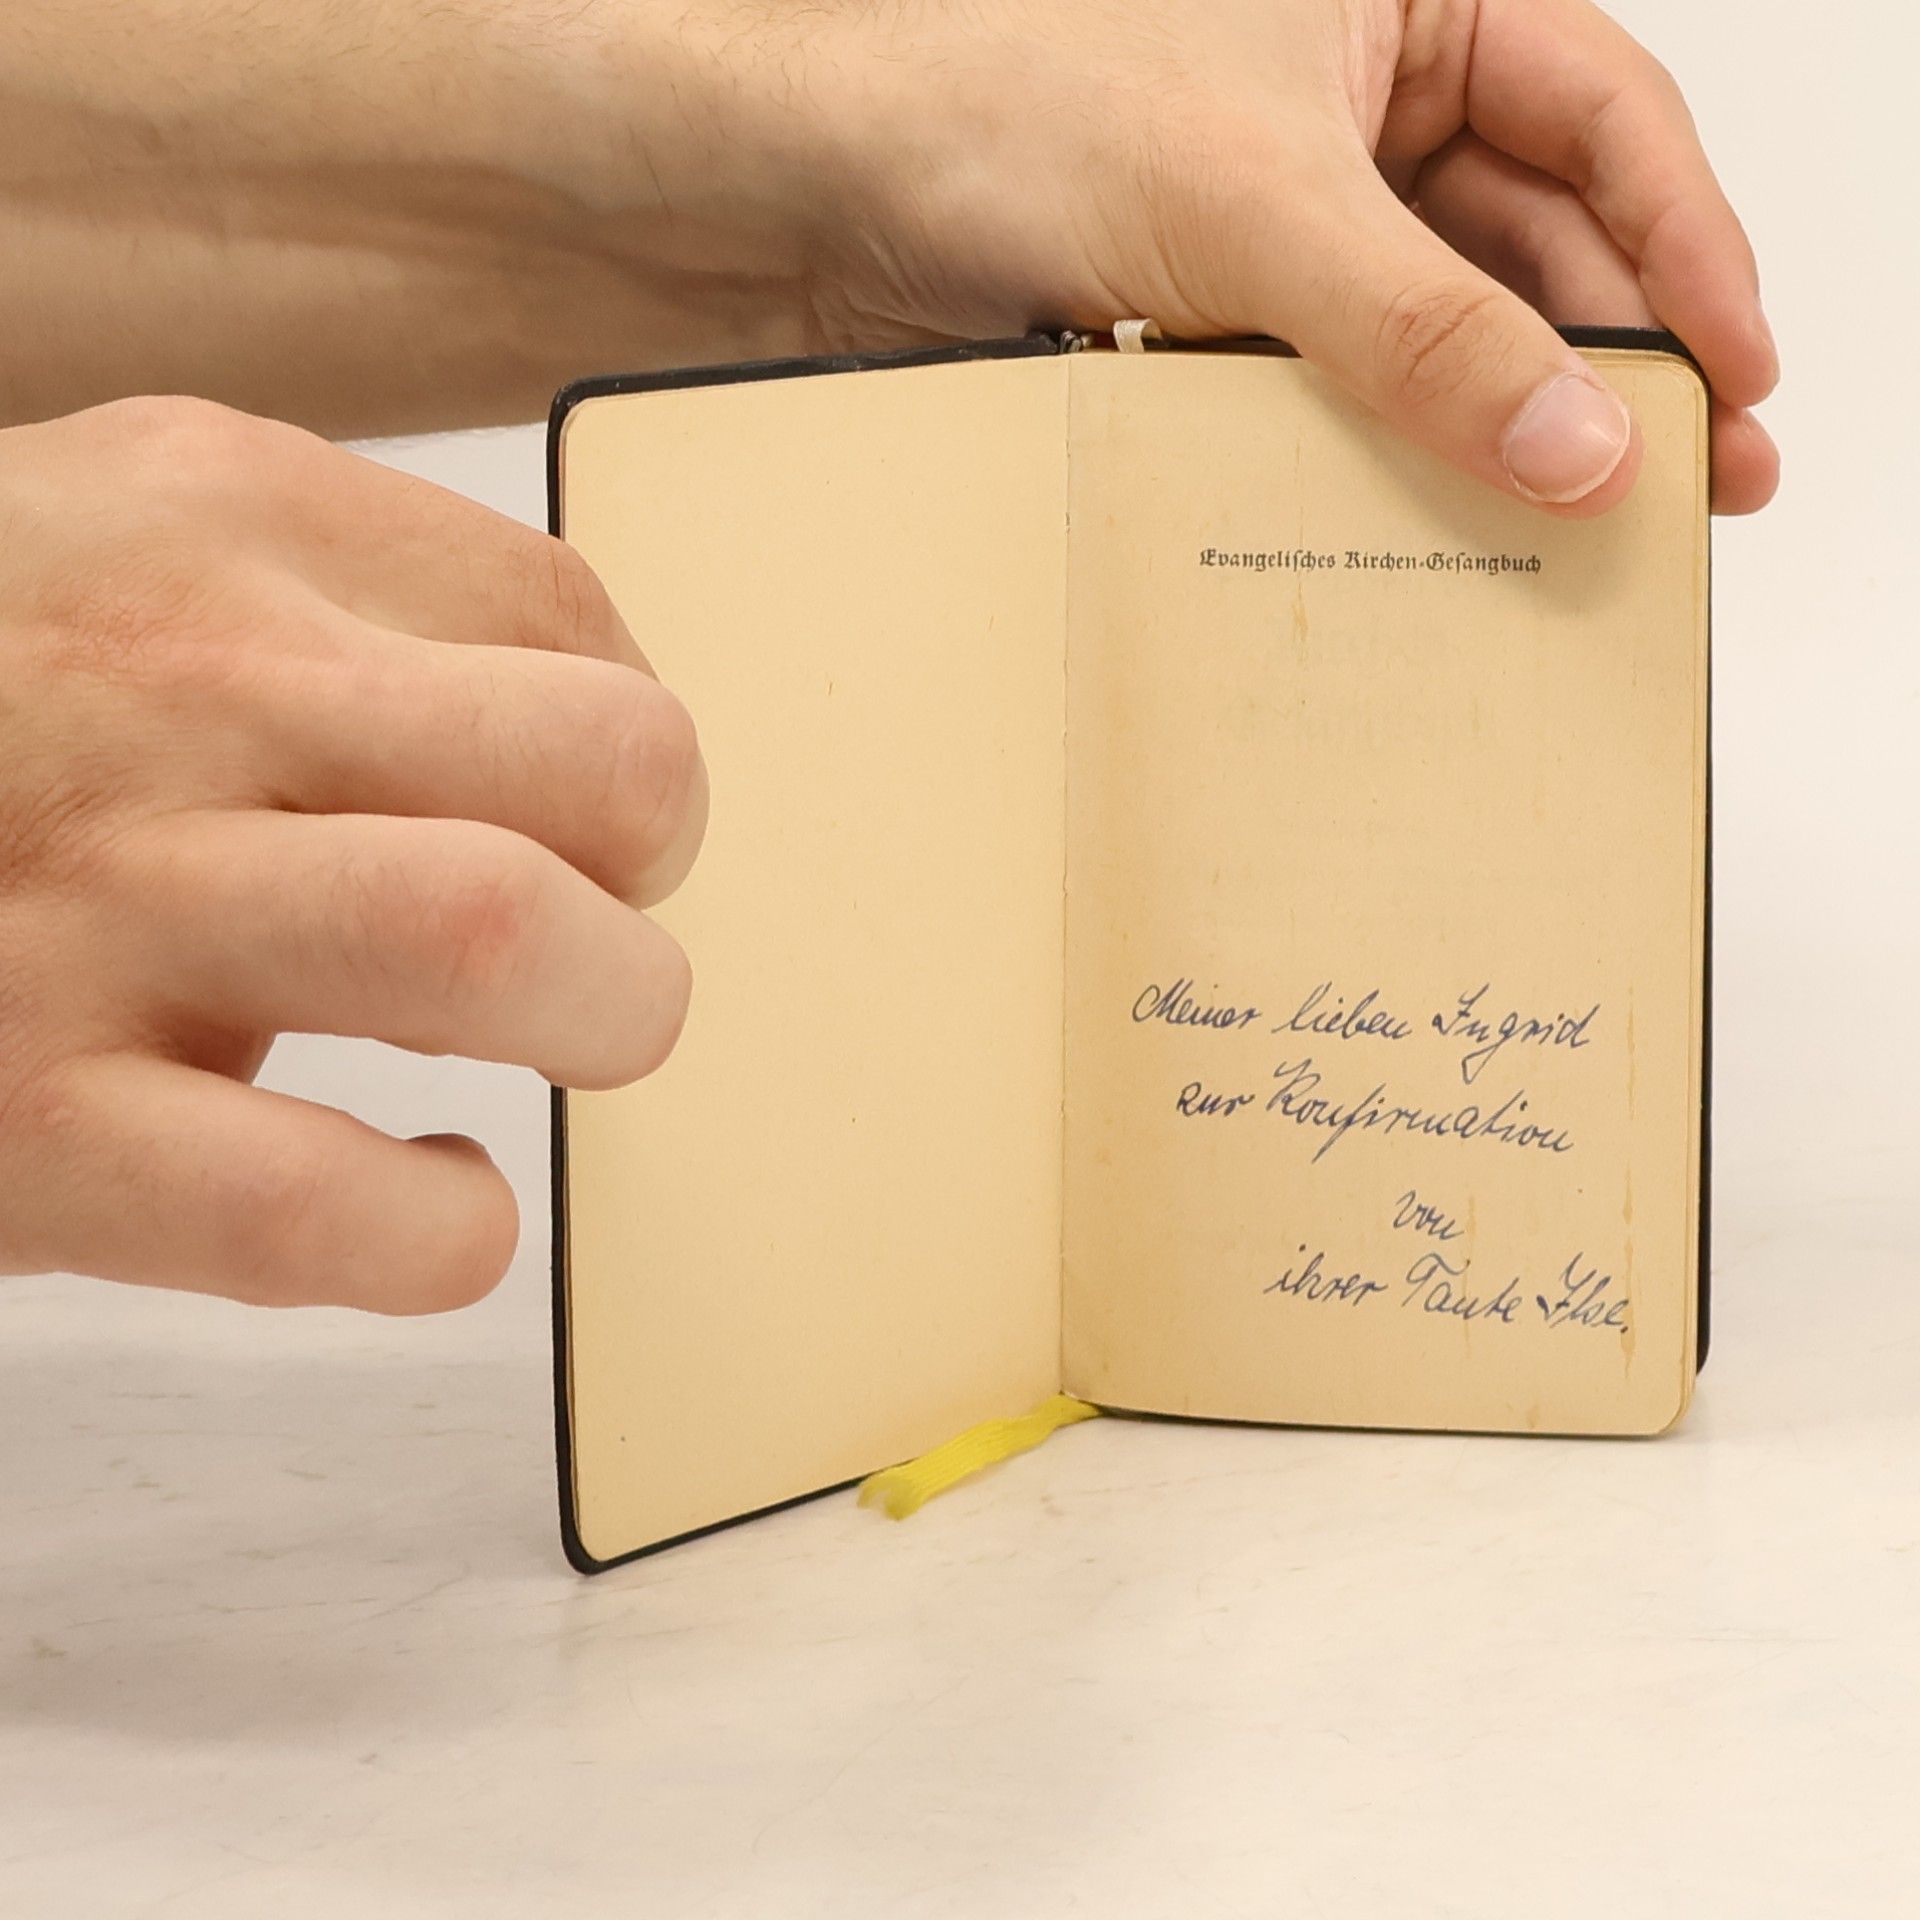 Evangeliſches Kirchen-Geſangbuch
Meiner lieben Ingrid
zur Konfirmation
von
ihrer Tante Ilse.